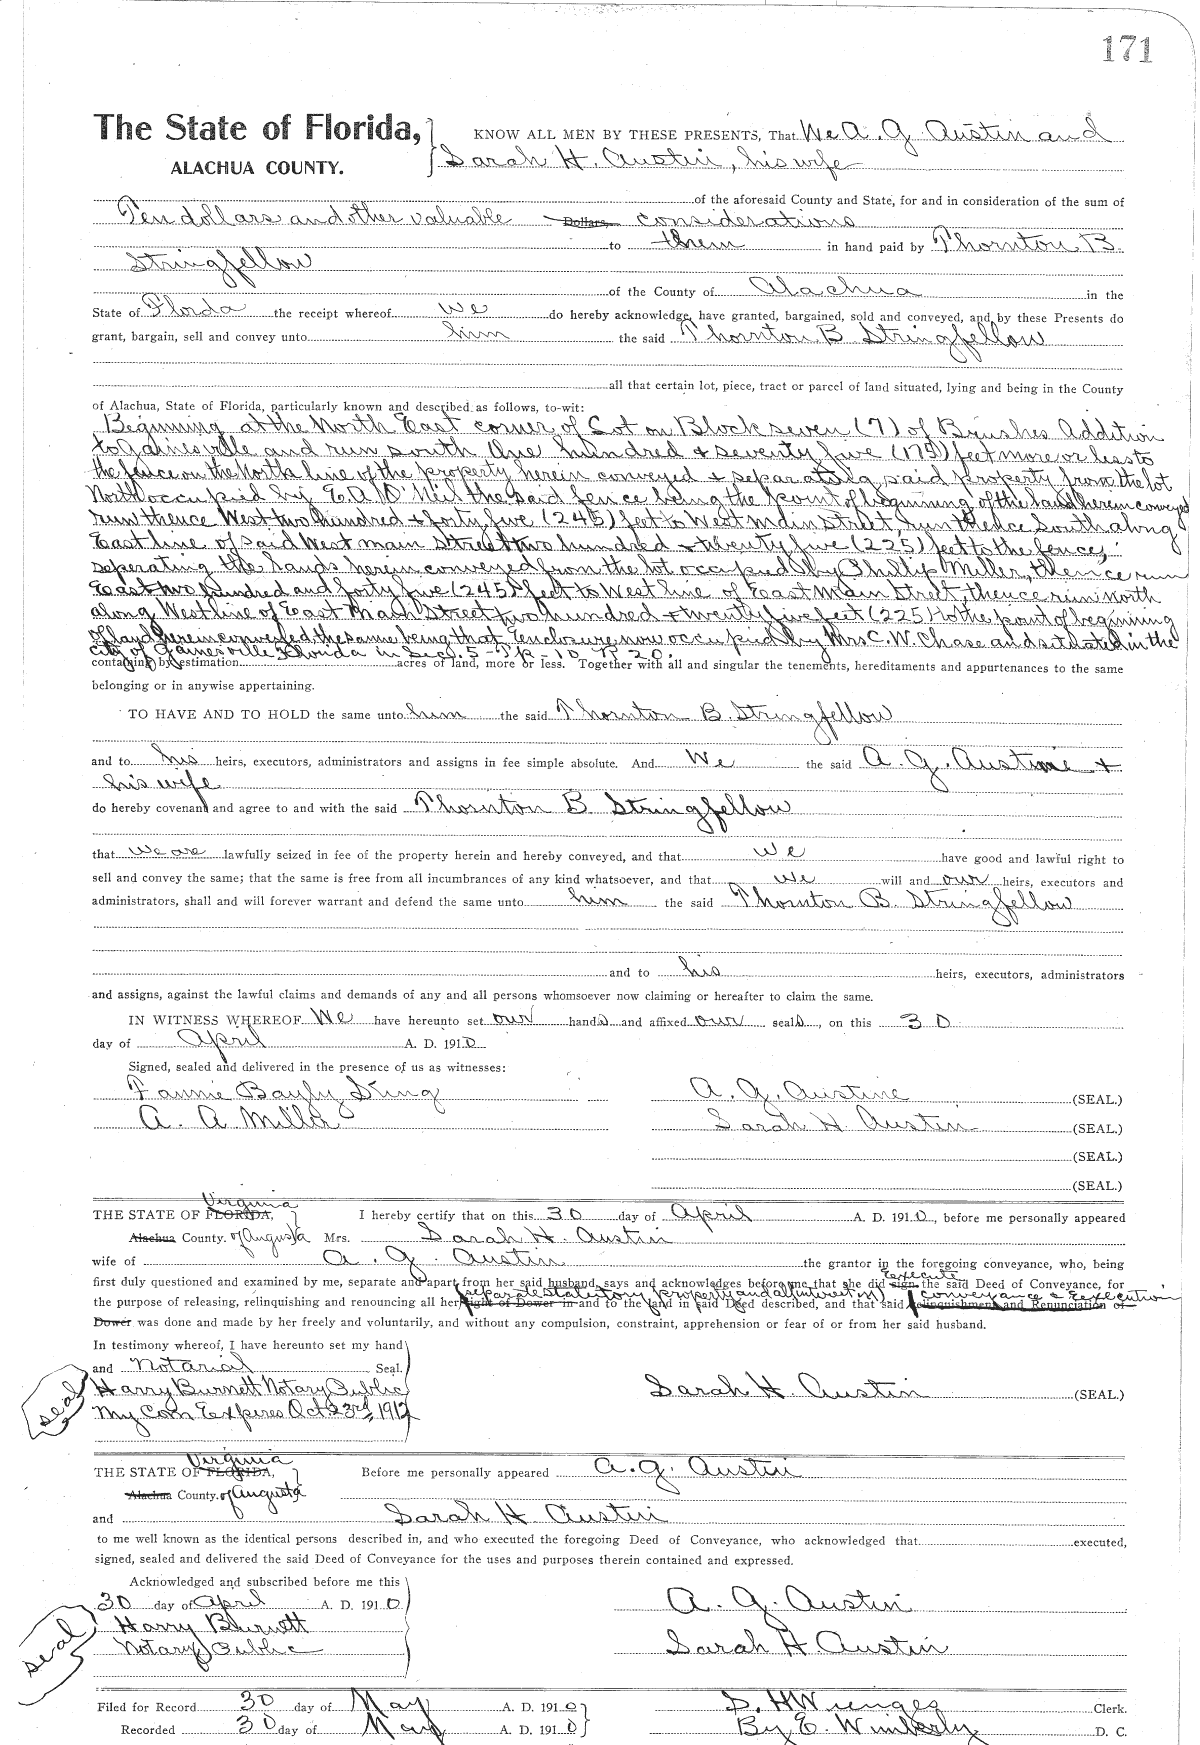 171
The State of Florida, KNOW ALL MEN BY THESE PRESENTS, That We A. G. Austin and
ALACHUA COUNTY. Sarah H. Austin, his wife
of the aforesaid County and State, for and in consideration of the sum of
Ten dollars and other valuable Dollars considerations
to them in hand paid by Thornton B.
Stringfellow
of the County of Alachua in the
State of Florda the receipt whereof we do hereby acknowledge, have granted, bargained, sold and conveyed, and by these Presents do
grant, bargain, sell and convey unto him the said Thornton B Stringfellow
all that certain lot, piece, tract or parcel of land situated, lying and being in the County
of Alachua, State of Florida, particularly known and described as follows, to-wit:
Beginning at the North East corner of Lot on Block seven (7) of Brushes Addition
to Gainesville and run south One hundred & seventy five (175) feet more or less to
the fence on the North line of the property herein conveyed & separating said property from the lot
North occupied by E. A. O'Neil the said fence being the point of beginning of the land herein conveyed
run thence West two hundred & forty five (245) feet to West Main Street run thence South along
East line of said West main Street two hundred & twenty five (225) feet to the fence,
seperating the lands herein conveyed from the lot occupied by Phillip Miller, thence run
East two hundred and forty five (245) feet to West line of East Main Street, thence run North
along West line of East Main Street two hundred & twenty five feet (225) to the point of beginning
of land herein conveyed the same being that Enclosure now occupied by Mrs C. W. Chase and situated in the
city of Gainesville Florida in Sec. 5 - Tp - 10 R 20.
containing by estimation acres of land, more or less. Together with all and singular the tenements, hereditaments and appurtenances to the same
belonging or in anywise appertaining.
TO HAVE AND TO HOLD the same unto him the said Thornton B Stringfellow
and to his heirs, executors, administrators and assigns in fee simple absolute. And We the said A. G. Austine +
his wife
do hereby covenant and agree to and with the said Thornton B Stringfellow
that we are lawfully seized in fee of the property herein and hereby conveyed, and that we have good and lawful right to
sell and convey the same; that the same is free from all incumbrances of any kind whatsoever, and that we will and our heirs, executors and
administrators, shall and will forever warrant and defend the same unto him the said Thornton B. Stringfellow
and to his heirs, executors, administrators
and assigns, against the lawful claims and demands of any and all persons whomsoever now claiming or hereafter to claim the same.
IN WITNESS WHEREOF We have hereunto set our hands and affixed our seals, on this 30
day of April A. D. 1910
Signed, sealed and delivered in the presence of us as witnesses:
Fannie Bayly King A. G. Austine (SEAL.)
A. A Miller Sarah H Austin (SEAL.)
(SEAL.)
(SEAL.)
Virginia
THE STATE OF FLORIDA, I hereby certify that on this 30 day of April A. D. 1910, before me personally appeared
Alachua County. of Augusta Mrs. Sarah H. Austin
wife of A. G. Austin the grantor in the foregoing conveyance, who, being
first duly questioned and examined by me, separate and apart from her said husband, says and acknowledges before me that she did sign execute the said Deed of Conveyance, for
separate statutory property and all interest in) conveyance & execution
the purpose of releasing, relinquishing and renouncing all her right of Dower in and to the land in said Deed described, and that said relinquishment and Renunciation of
Dower was done and made by her freely and voluntarily, and without any compulsion, constraint, apprehension or fear of or from her said husband.
In testimony whereof, I have hereunto set my hand
and Notarial Seal.
seal Harry Burnett Notary Public Sarah H. Austin (SEAL.)
My Com Expires Oct 23rd, 1912
Virginia
THE STATE OF FLORIDA, Before me personally appeared A. G. Austin
Alachua County. of Augusta
and Sarah H Austin
to me well known as the identical persons described in, and who executed the foregoing Deed of Conveyance, who acknowledged that executed,
signed, sealed and delivered the said Deed of Conveyance for the uses and purposes therein contained and expressed.
Acknowledged and subscribed before me this
30 day of April A. D. 1910 A. G. Austin
seal Harry Burnett
Notary Public Sarah H Austin
Filed for Record 30 day of May A. D. 1910 S. H Wienges Clerk.
Recorded 30 day of May A. D. 1910 By E. Wimberly D. C.